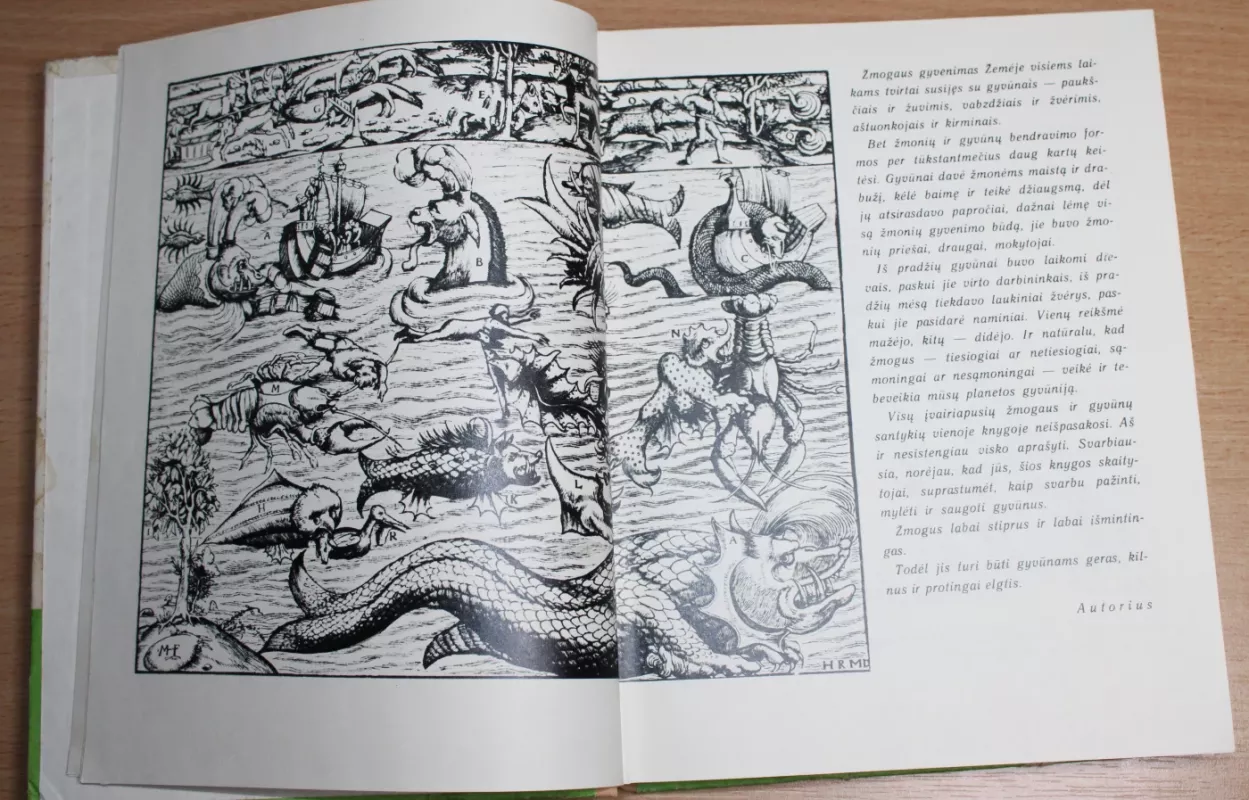 G
E
O
Q
A
B
C
N
M
K
L
H
R
A
MHF
HRMD
Žmogaus gyvenimas Žemėje visiems lai-
kams tvirtai susijęs su gyvūnais — paukš-
čiais ir žuvimis, vabzdžiais ir žvėrimis,
aštuonkojais ir kirminais.
Bet žmonių ir gyvūnų bendravimo for-
mos per tūkstantmečius daug kartų kei-
tėsi. Gyvūnai davė žmonėms maistą ir dra-
bužį, kėlė baimę ir teikė džiaugsmą, dėl
jų atsirasdavo papročiai, dažnai lėmę vi-
są žmonių gyvenimo būdą, jie buvo žmo-
nių priešai, draugai, mokytojai.
Iš pradžių gyvūnai buvo laikomi die-
vais, paskui jie virto darbininkais, iš pra-
džių mėsą tiekdavo laukiniai žvėrys, pas-
kui jie pasidarė naminiai. Vienų reikšmė
mažėjo, kitų — didėjo. Ir natūralu, kad
žmogus — tiesiogiai ar netiesiogiai, są-
moningai ar nesąmoningai — veikė ir te-
beveikia mūsų planetos gyvūniją.
Visų įvairiapusių žmogaus ir gyvūnų
santykių vienoje knygoje neišpasakosi. Aš
ir nesistengiau visko aprašyti. Svarbiau-
sia, norėjau, kad jūs, šios knygos skaity-
tojai, suprastumėt, kaip svarbu pažinti,
mylėti ir saugoti gyvūnus.
Žmogus labai stiprus ir labai išmintin-
gas.
Todėl jis turi būti gyvūnams geras, kil-
nus ir protingai elgtis.
Autorius